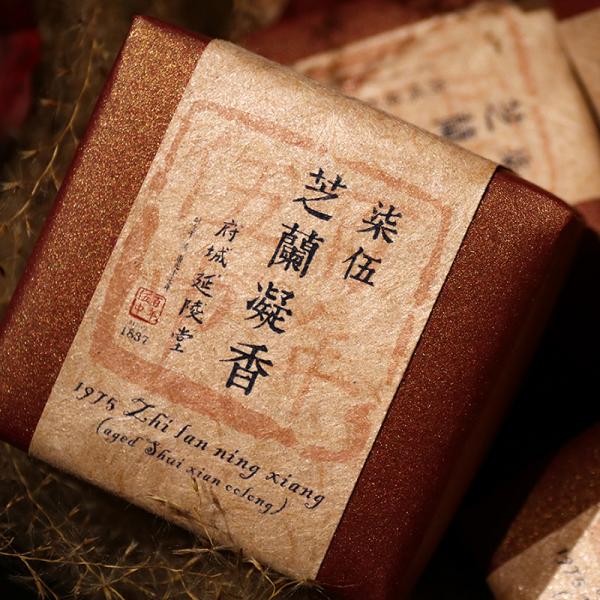 柒伍
芝蘭凝香
府城延陵堂
1837
1975 Zhi lan ning xiang
(aged Shui xian oolong)